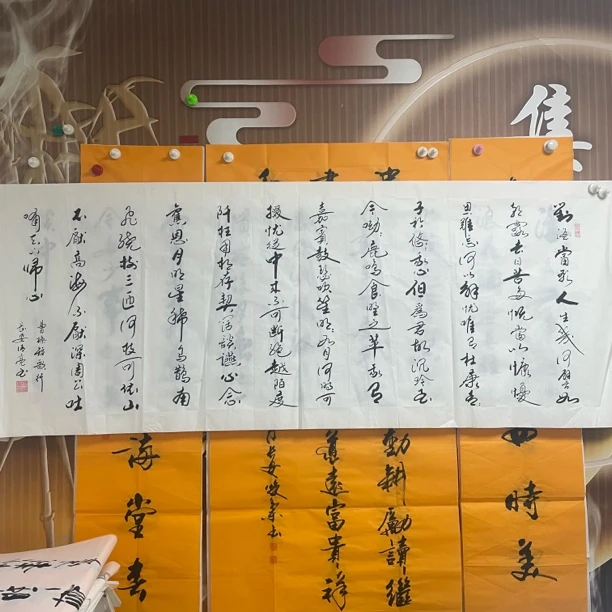 集
對酒當歌人生幾何譬如
朝露去日苦多慨當以慷憂
思難忘何以解忧唯有杜康青
子衿悠悠我心但為君故沉吟至
今呦呦鹿鳴食野之苹我有
嘉賓鼓瑟吹笙明明如月何時可
掇忧從中来不可断绝越陌度
阡枉用相存契阔談讌心念
舊恩月明星稀烏鵲南
飛繞樹三匝何枝可依山
不厭高海不厭深周公吐
哺天下歸心
曹操短歌行
時美
動耕勵讀繼
遠富貴祥
海堂春